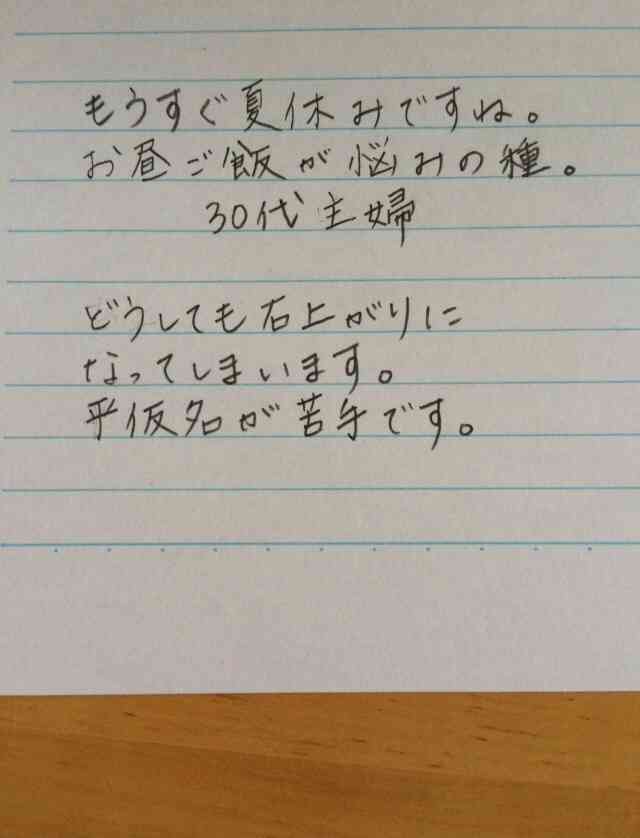 もうすぐ夏休みですね。
お昼ご飯が悩みの種。
30代主婦
どうしても右上がりに
なってしまいます。
平仮名が苦手です。